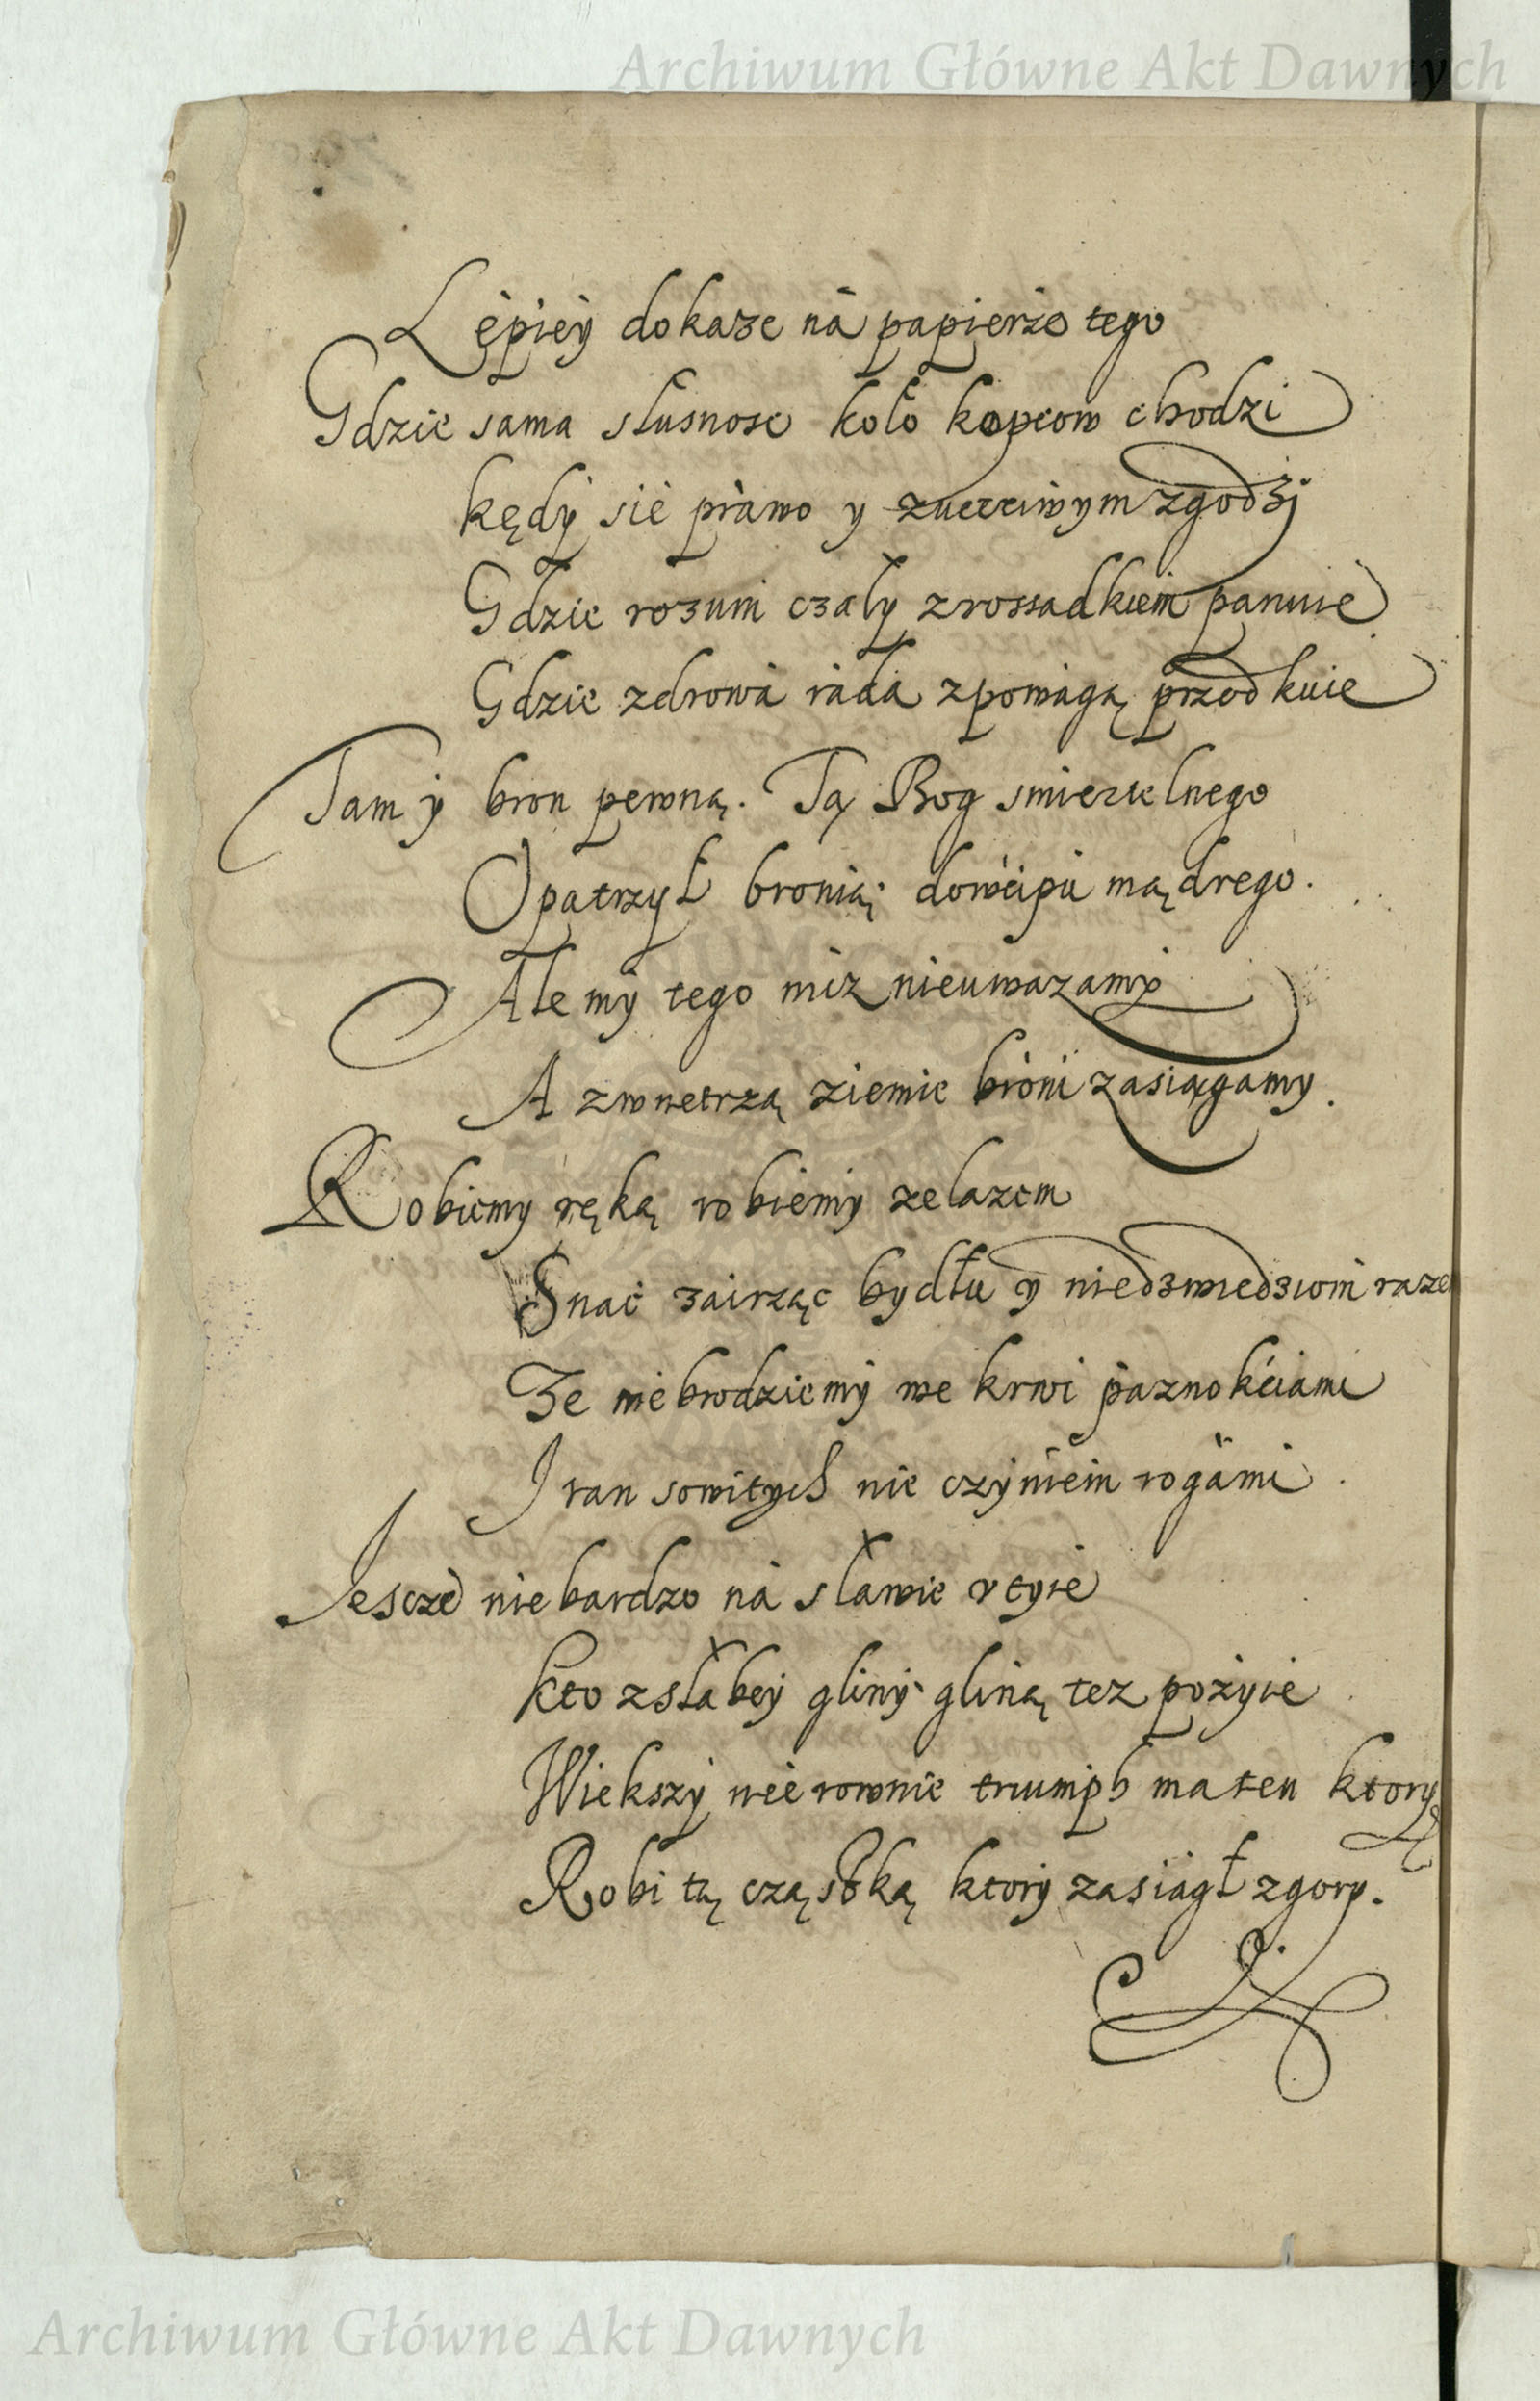 Archiwum Główne Akt Dawnych
Lepiey dokaze na papierze tego
Gdzie sama slusnosc kolo kopcow chodzi
kędy sie prawo y zuccziwym zgodzi
Gdzie rozum czaly z rossadkiem panuie
Gdzie zdrowa rada z powagą przodkuie
Tam y bron pewną. Tą Bog smiertelnego
Opatrzył bronią; dowcipu mądrego.
Ale my tego niz nieuwazamy
A zwnetrzą ziemie broni zasiągamy.
Robiemy ręką robiemy zelazem
Snac zairząc bydłu y niedzwiedziom raze
Ze nie brodziemy we krwi paznokćiami
I ran sowitych nie czyniem rogami
Jescze nie bardzo na sławie vtyie
kto z słabey gliny gliną tez pożyie
Wiekszy nie rownie triumph ma ten ktory
Robi tą cząstką ktory zasiągł zgory.
Archiwum Główne Akt Dawnych